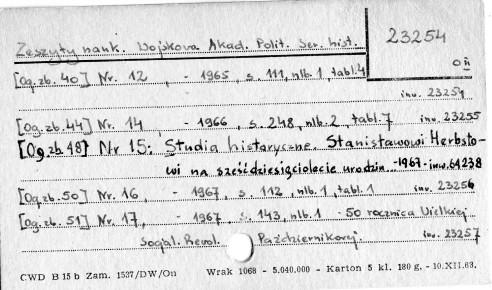 Zeszyty nauk. Wojskowa Akad. Polit. Ser. hist.
23254
[Og.zb. 40] Nr. 12, - 1965, s. 111, nlb. 1, tabl. 4
inw. 23254
[Og.zb. 44] Nr. 14, - 1966, s. 248, nlb. 2, tabl. 7 inw. 23255
[Og.zb. 48] Nr 15: Studia historyczne. Stanisławowi Herbsto-
wi na sześćdziesięciolecie urodzin. -1967- inw. 61238
[Og.zb. 50] Nr. 16, - 1967, s. 112, nlb. 1, tabl. 1 inw. 23256
[Og.zb. 51] Nr. 17, - 1967 s. 143, nlb. 1 - 50 rocznica Wielkiej
Socjal. Rewol. Październikowej. inw. 23257
CWD B 15 b Zam. 1537/DW/On Wrak 1068 - 5.040.000 - Karton 5 kl. 180 g. - 10.XII.63.